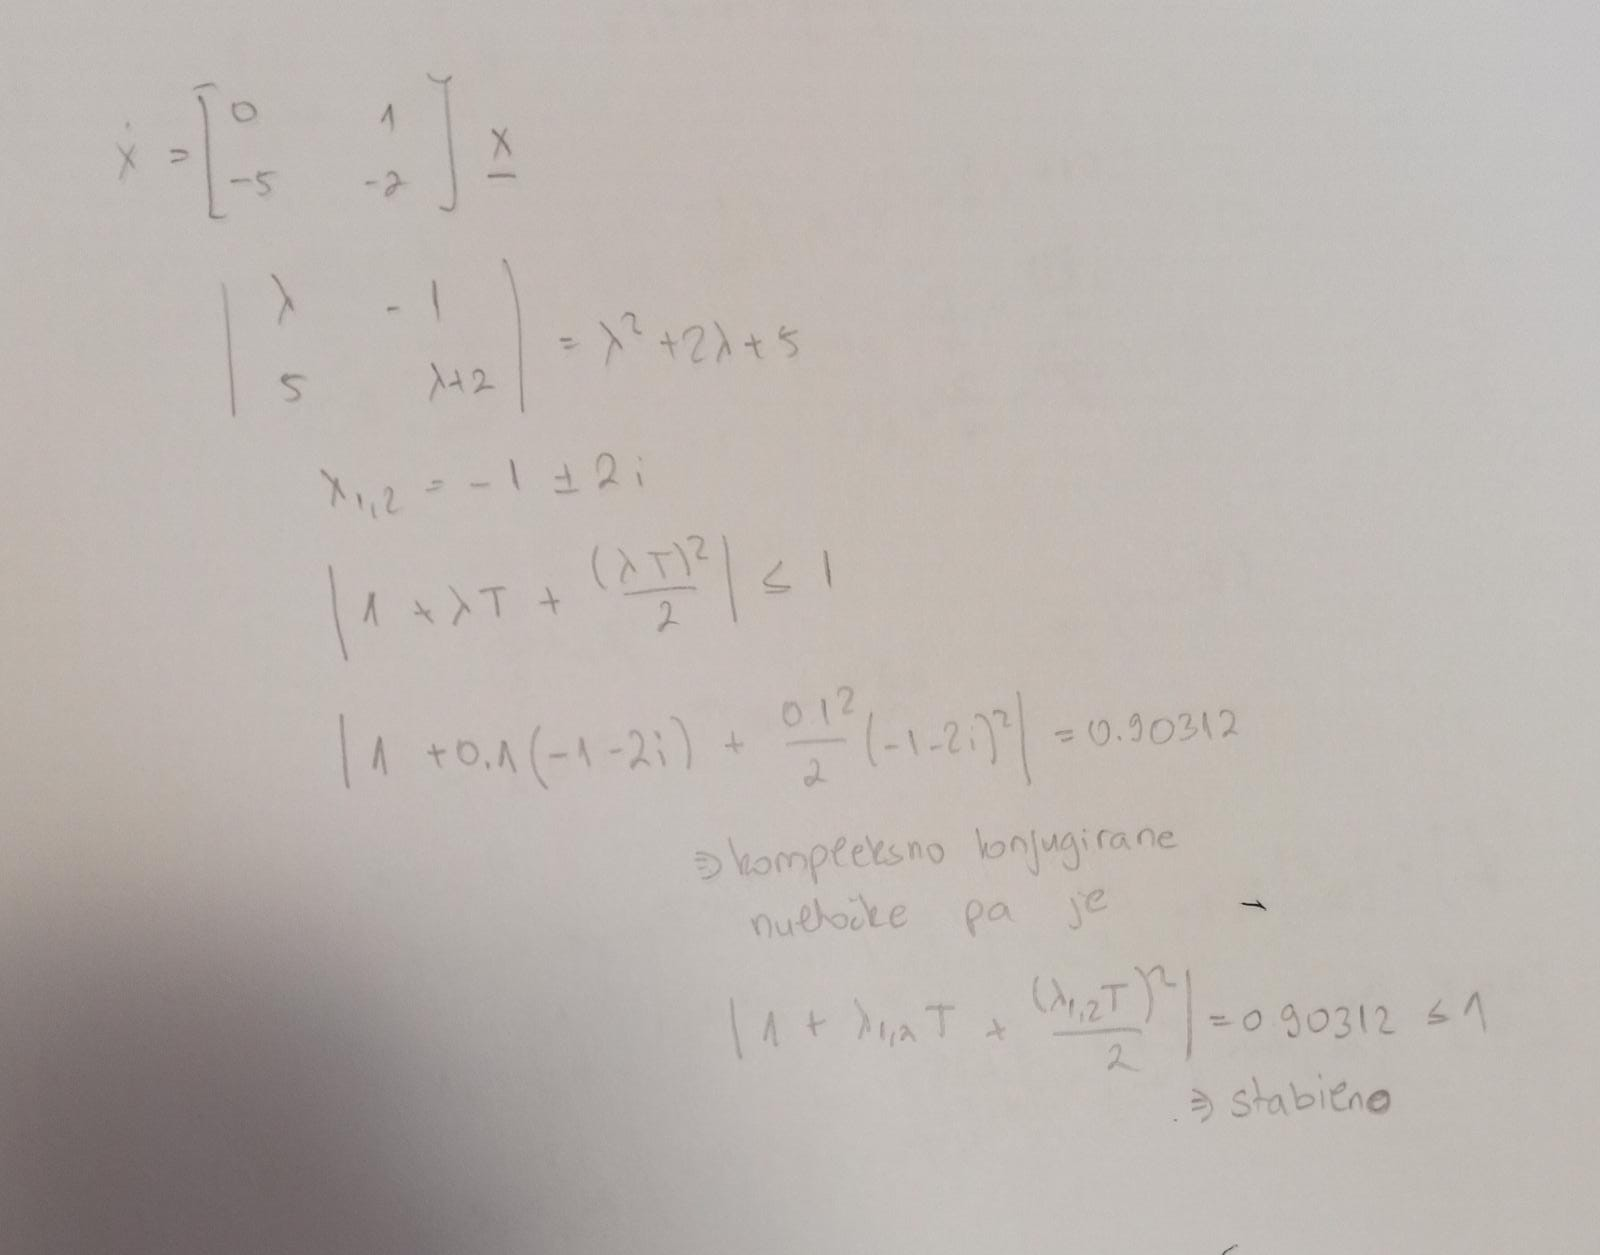 ẋ = [ 0 1 ; -5 -2 ] x
| λ -1 ; 5 λ+2 | = λ² + 2λ + 5
x₁,₂ = -1 ± 2i
| 1 + λT + (λT)²/2 | ≤ 1
| 1 + 0.1(-1-2i) + 01²/2 (-1-2i)² | = 0.90312
⇒ kompleksno konjugirane
nultočke pa je
| 1 + λ₁,₂T + (λ₁,₂T)²/2 | = 0 90312 ≤ 1
⇒ stabilno